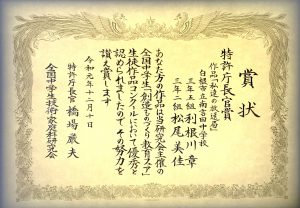 賞状
特許庁長官賞
作品「私達の放送局」
白根市立南吉田中学校
三年五組 利根川 章
三年二組 松尾 美佳
あなた方の作品は当研究会主催の
全国中学生「創造ものづくり教育フェア」
生徒作品コンクールにおいて優秀と
認められましたので その努力を
讃え賞します
令和元年十二月十日
特許庁長官 橋場 厳夫
全国中学生技術・家庭科研究会